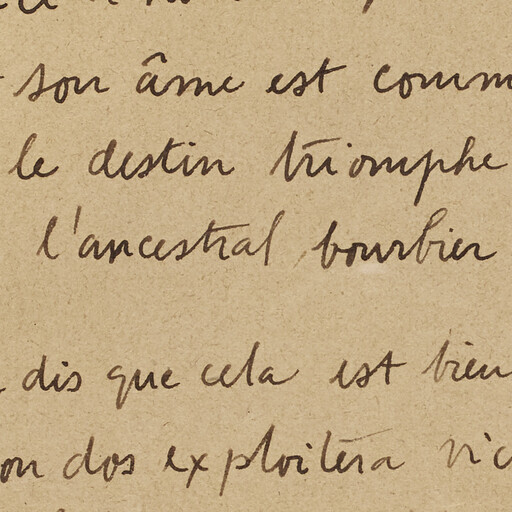 son âme est comm
le destin triomphe
l'ancestral bourbier
dis que cela est bien
on dos exploitera vic